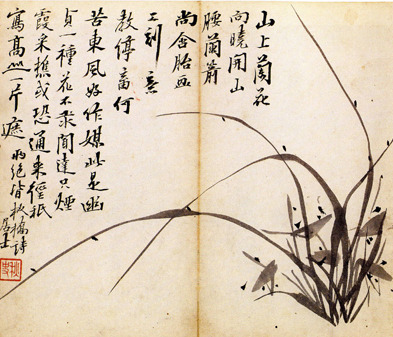 山上蘭花
向曉開山
腰蘭箭
尚含胎画
工刻意
教停畜何
苦東風好作媒此是幽
貞一種花不求聞達只煙
霞采樵或恐通來徑祗
寫高山一片遮
兩絶皆板橋詩
居士
秋史